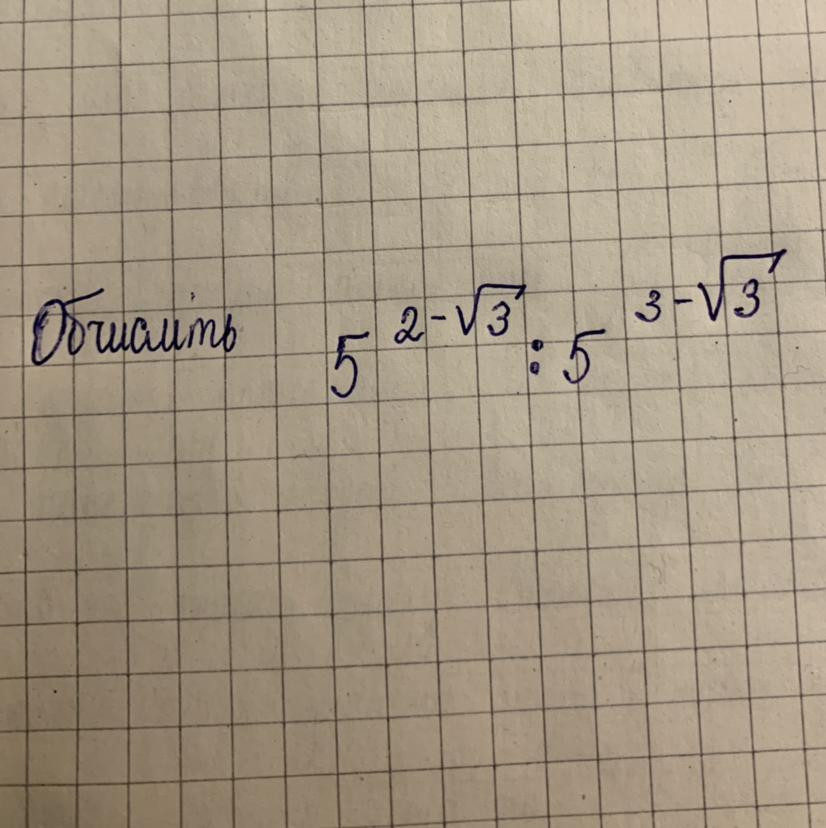 Обчисліть 5^{2-√3} : 5^{3-√3}